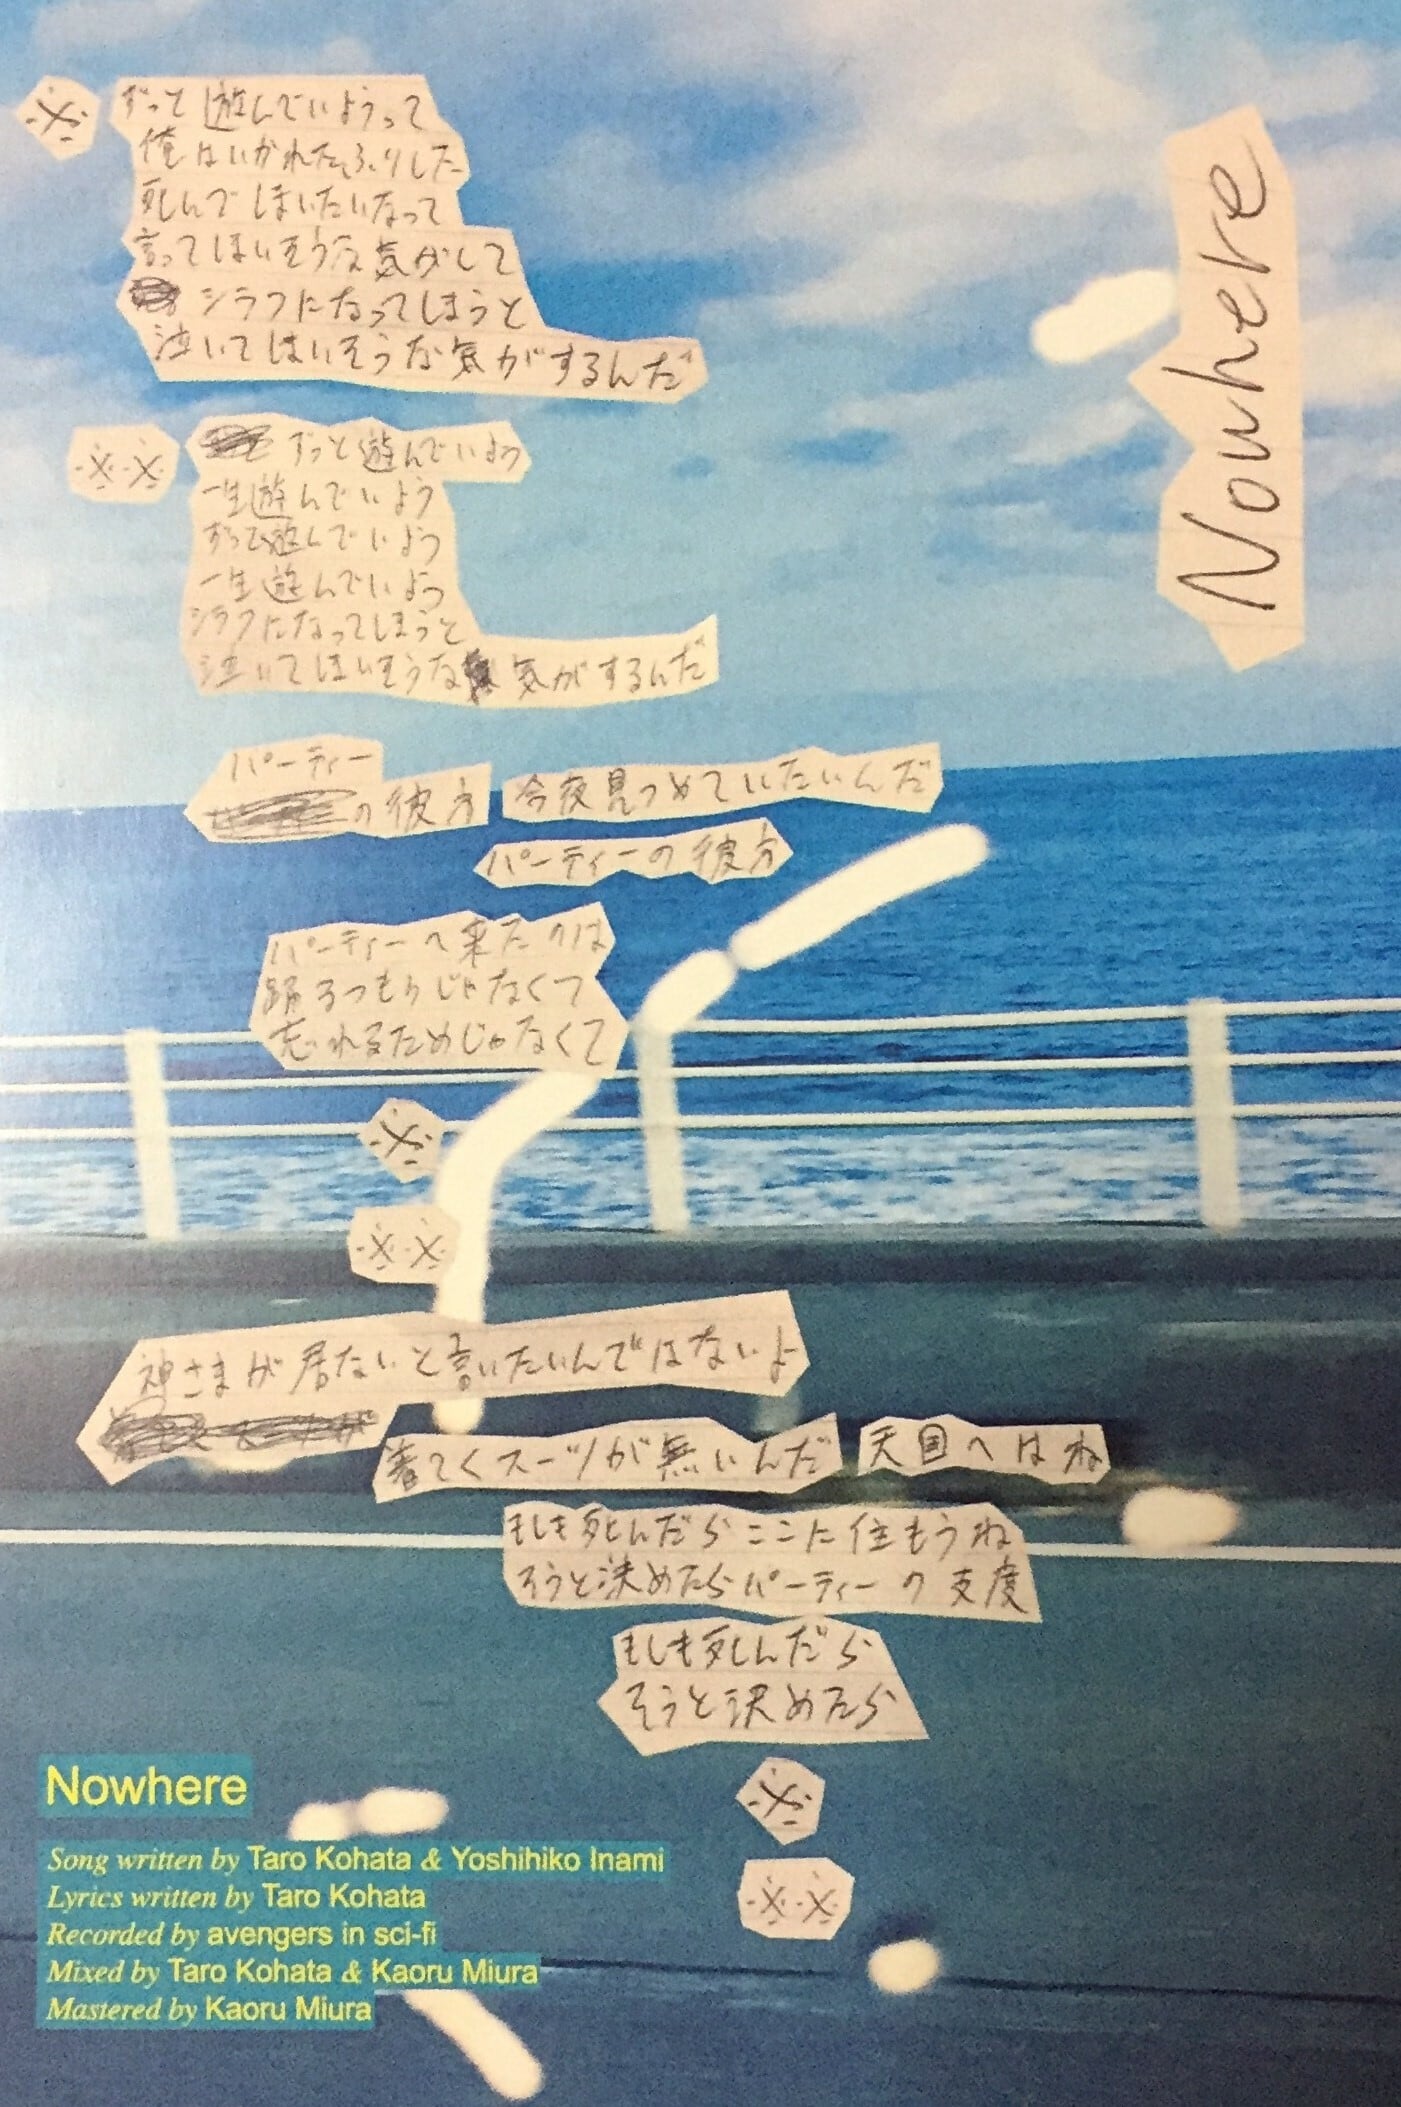 Nowhere
※ ずっと遊んでいようって
俺はいかれたふりした
死んでしまいたいなって
言ってしまいそうな気がして
シラフになってしまうと
泣いてしまいそうな気がするんだ
※※ ずっと遊んでいよう
一生遊んでいよう
ずっと遊んでいよう
一生遊んでいよう
シラフになってしまうと
泣いてしまいそうな気がするんだ
パーティー
の彼方 今夜見つめていたいんだ
パーティーの彼方
パーティーへ来たのは
踊るつもりじゃなくて
忘れるためじゃなくて
※
※※
神さまが居ないと言いたいんではないよ
着てくスーツが無いんだ 天国へはね
もしも死んだらここに住もうね
そうと決めたらパーティーの支度
もしも死んだら
そうと決めたら
※
※※
Nowhere
Song written by Taro Kohata & Yoshihiko Inami
Lyrics written by Taro Kohata
Recorded by avengers in sci-fi
Mixed by Taro Kohata & Kaoru Miura
Mastered by Kaoru Miura